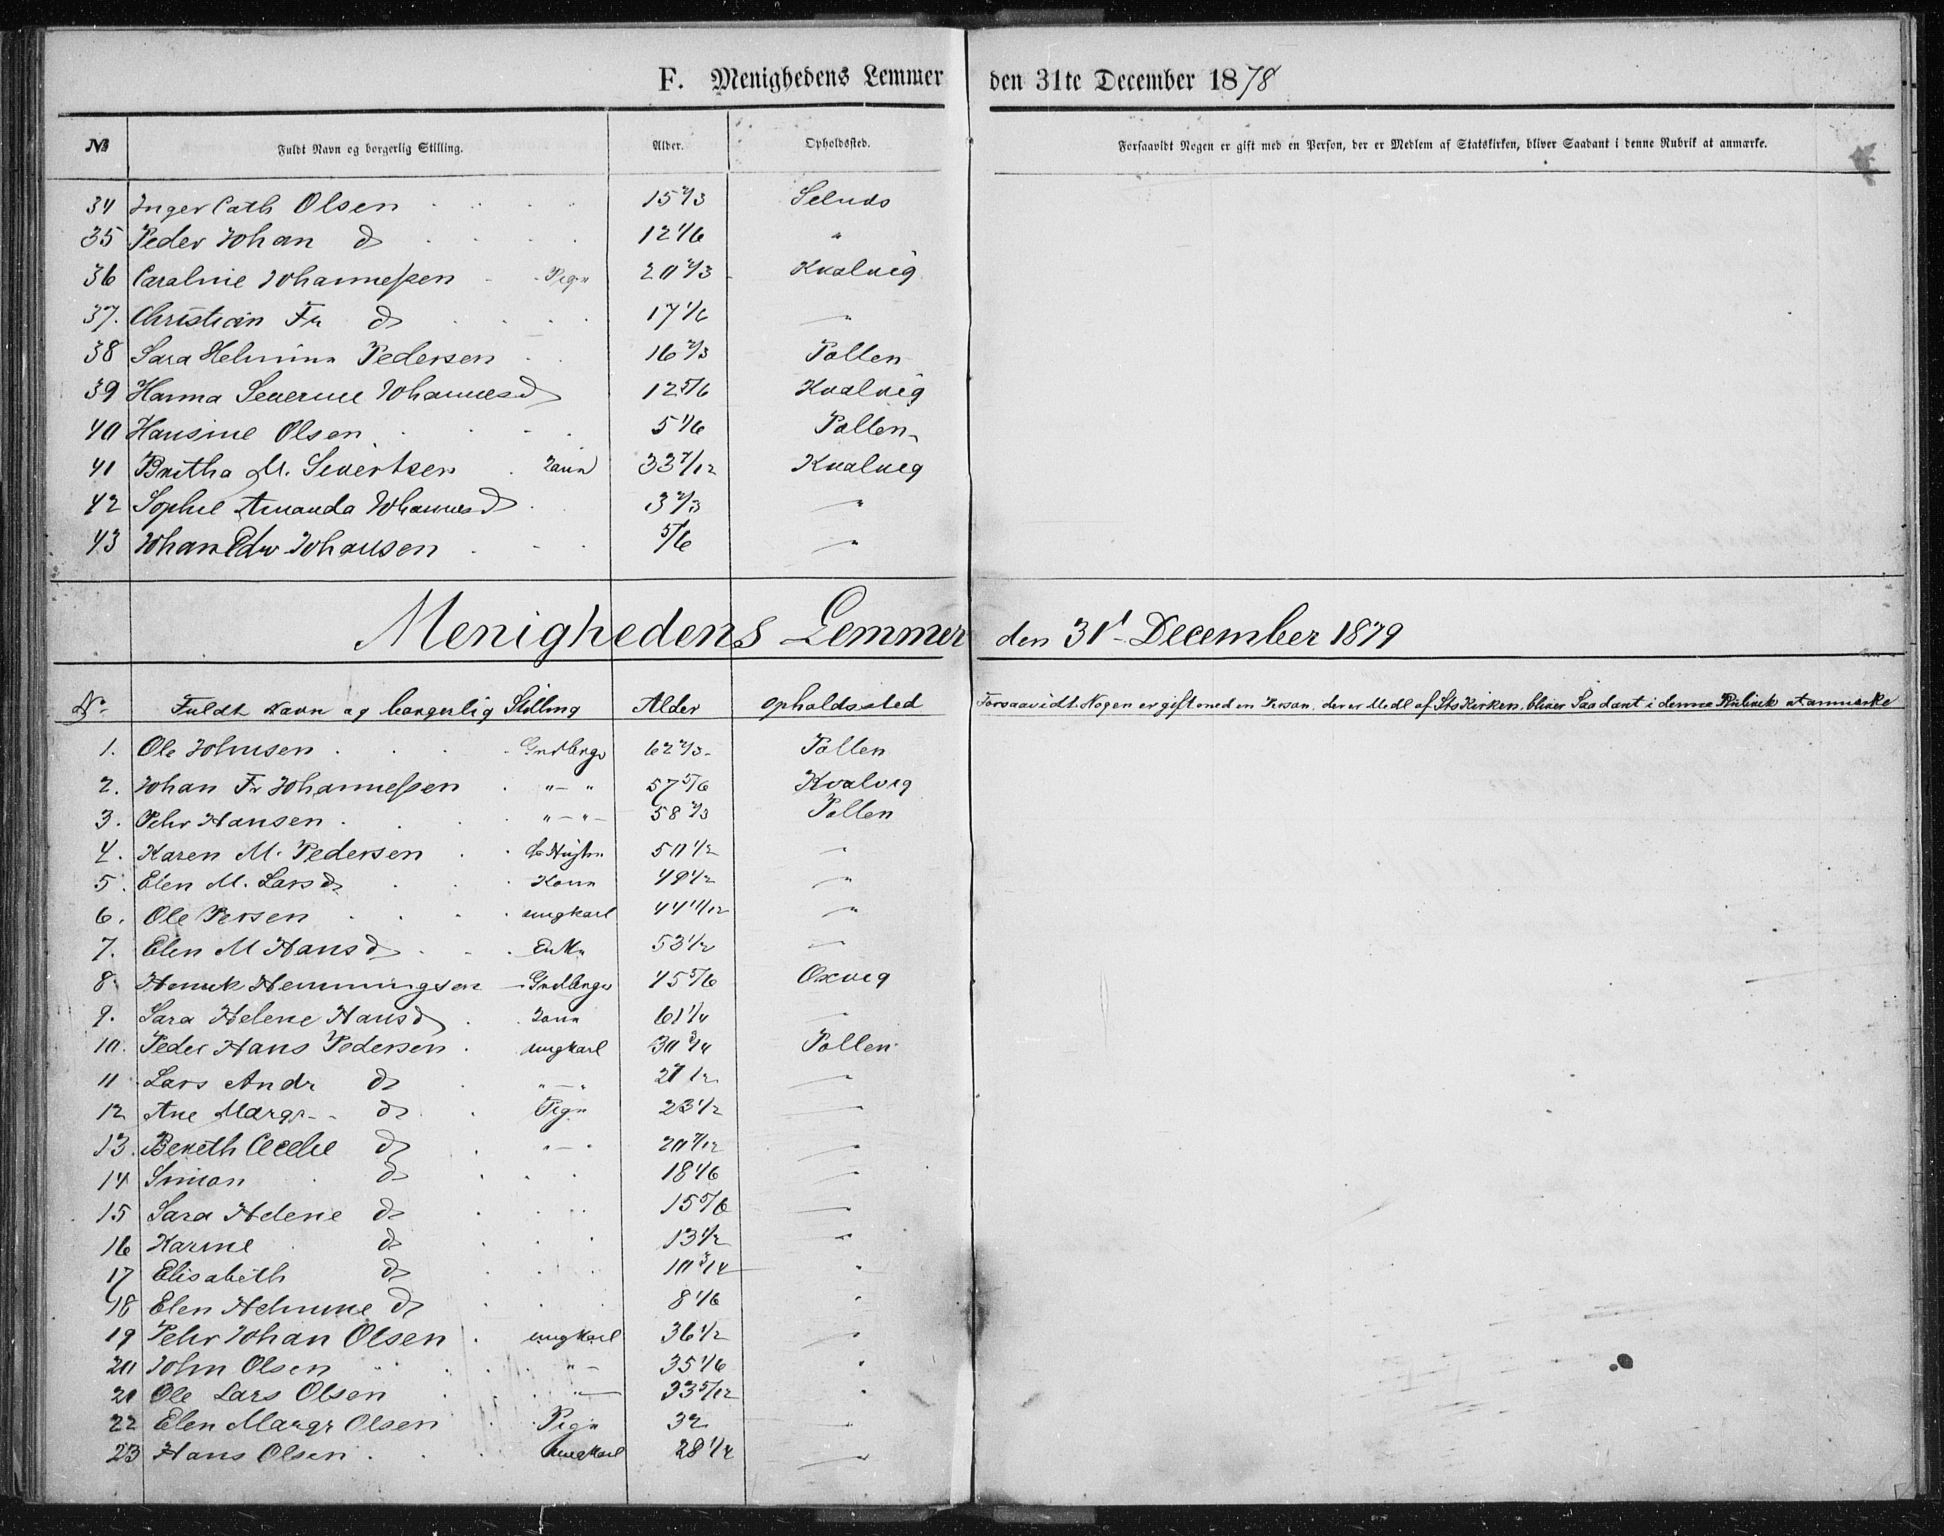 F. Menighedens Lemmer den 31te December 1878
№ Fuldt Navn og borgerlig Stilling. Alder. Opholdssted. Forsaavidt Nogen er gift med en Person, der er Medlem af Statskirken, bliver Saadant i denne Rubrik at anmærke.
34 Inger Cath Olsen 15 2/3
35 Peder Johan do 12 1/6 "
36 Caroline Johannessen Pige 20 2/3 Kvalvig
37. Christian Fr do 17 1/6 "
38 Sara Helmine Pedersen 16 2/3 Pollen
39 Hanna Severine Johannesd 12 5/6 Kvalvig
40 Hansine Olsen 5 1/6 Pollen
41 Britha M. Sivertsen Kone 33 7/12 Kvalvig
42 Sophie Amanda Johannesd 3 2/3 "
43 Johan Edw Johansen 5/6 "
Menighedens Lemmer den 31t December 1879
No. Fuldt Navn og borgerlig Stilling Alder Opholdssted Forsaavidt Nogen er gift med en Person, der er Medl af StsKirken, bliver Saadant i denne Rubrik at anmærke
1. Ole Johnsen Grdbrgr 62 2/3 Pollen
2. Johan Fr Johannessen " - " 57 5/6 Kvalvig
3. Pehr Hansen " - " - 58 2/3 Pollen
4. Karen M. Pedersen 50 1/2 "
5. Elen M. Larsd Kone 49 1/2 "
6. Ole Persen ungkarl 44 11/12 "
7. Elen M Hansd Enke 53 1/2 "
8. Henrik Hemmingsen Grdbrgr 45 5/6 Oxvig
9. Sara Helene Hansd Kone 61 1/4 "
10. Peder Hans Pedersen ungkarl 30 3/4 Pollen
11 Lars Andr do " - " 27 1/2 "
12 Ane Margr do Pige 23 1/2 "
13. Bereth Cecelie do " - " 20 7/12 "
14 Simon do 18 1/6 "
15 Sara Helene do 15 5/6 "
16 Karine do 13 1/2 "
17 Elisabeth do 10 3/4 "
18 Elen Helmine do 8 1/6 "
19 Pehr Johan Olsen ungkarl 36 1/2 "
20 John Olsen " - 35 1/6 "
21 Ole Lars Olsen " - 33 5/12 "
22 Elen Margr Olsen Pige 32 "
23 Hans Olsen ungkarl 28 1/2 "